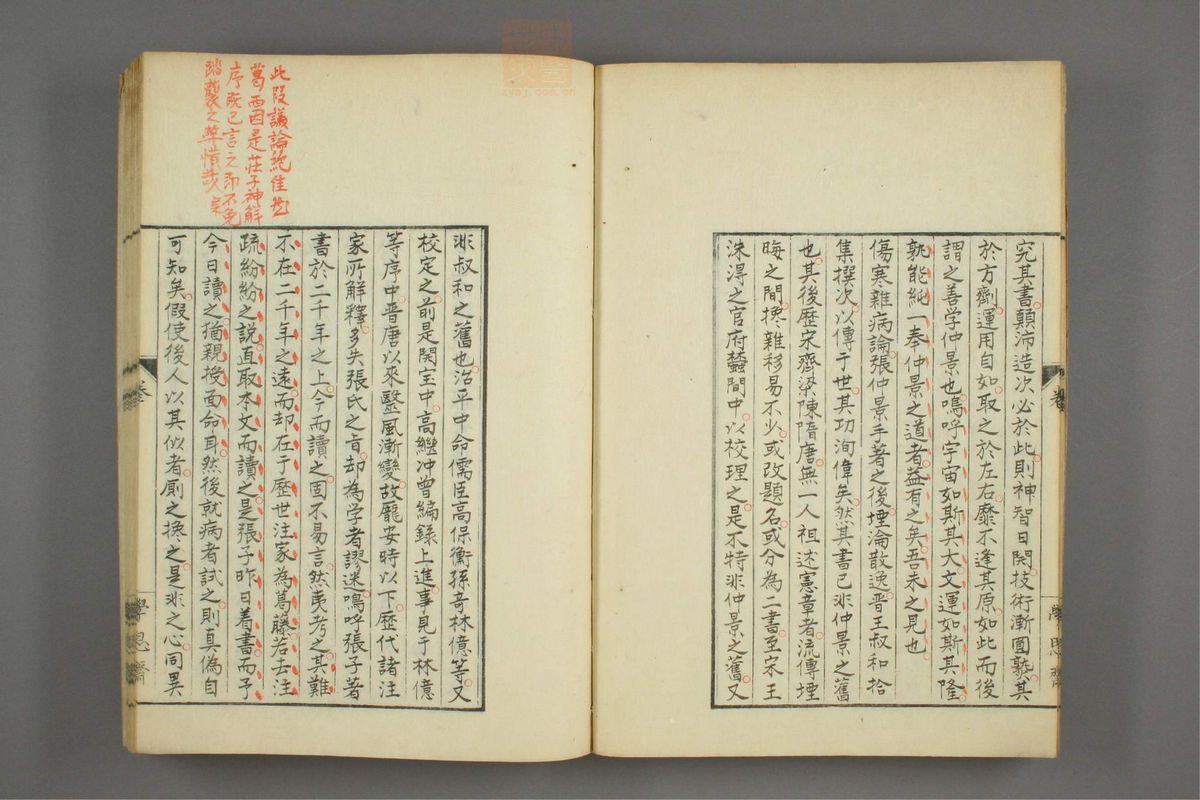 究其書顛沛造次必於此則神智日開技術漸圓熟其
於方劑運用自如取之於左右靡不逢其原如此而後
謂之善学仲景也嗚呼宇宙如斯其大文運如斯其隆
孰能純一奉仲景之道者益有之矣吾未之見也
傷寒雜病論張仲景手著之後堙淪散逸晋王叔和拾
集撰次以傳于世其功洵偉矣然其書已非仲景之舊
也其後歴宋齊梁陳隋唐無一人祖述憲章者流傳堙
晦之間搀雜移易不少或改題名或分為二書至宋王
洙得之官府蠹簡中以校理之是不特非仲景之舊又
學思齋
非叔和之舊也治平中命儒臣高保衡孫奇林億等又
校定之前是開宝中高繼冲曾編錄上進事見于林億
等序中晋唐以來醫風漸變故龐安時以下歴代諸注
家所解釋多失張氏之旨却為学者謬迷嗚呼張子著
書於二千年之上今而讀之固不易言然夷考之其難
不在二千年之遠而却在于歴世注家為葛藤若去注
疏紛紛之説直取本文而讀之是張子昨日着書而予
今日讀之猶親授面命耳然後就病者試之則真偽自
可知矣假使後人以其似者厠之搀之是非之心同異
卷
學思齋
此段議論絶佳
葛西因是莊子神解
序既已言之即不免
踏襲之弊惜哉